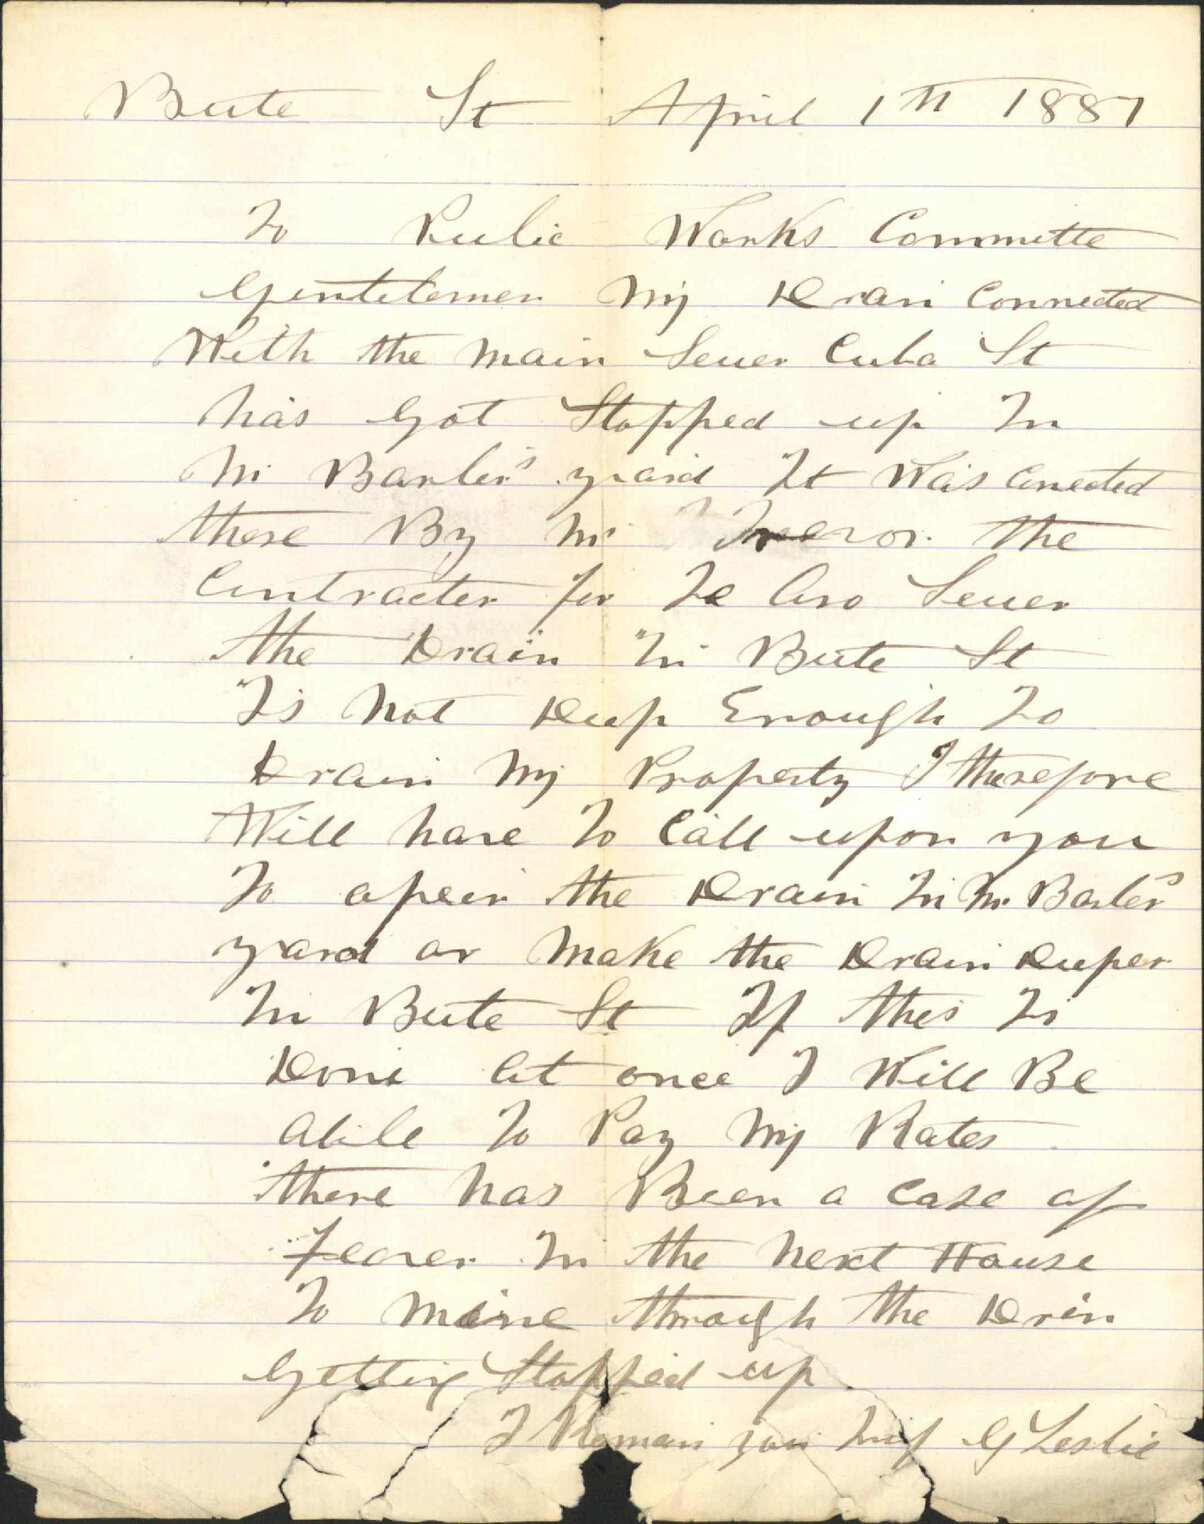 Bute St April 1th 1887
To Publie Works Committe
Gentelemen My Drain Connected
With the main Sewer Cuba St
has Got Stopped up In
Mr Barber's yard It Was Conected
there By Mr Trevor the
Contracter for Te Aro Sewer
the Drain In Bute St
Is Not Deep Enough To
Drain My Property I therefore
Will have To Call upon you
To open the Drain In Mr Barber's
yard or Make the Drain Deeper
In Bute St If this Is
Done At once I Will Be
Abile To Pay My Rates
there has Been a Case of
Feaver In the Next House
To Mine through the Drin
Getting Stopped up
I Remain your G Leslie